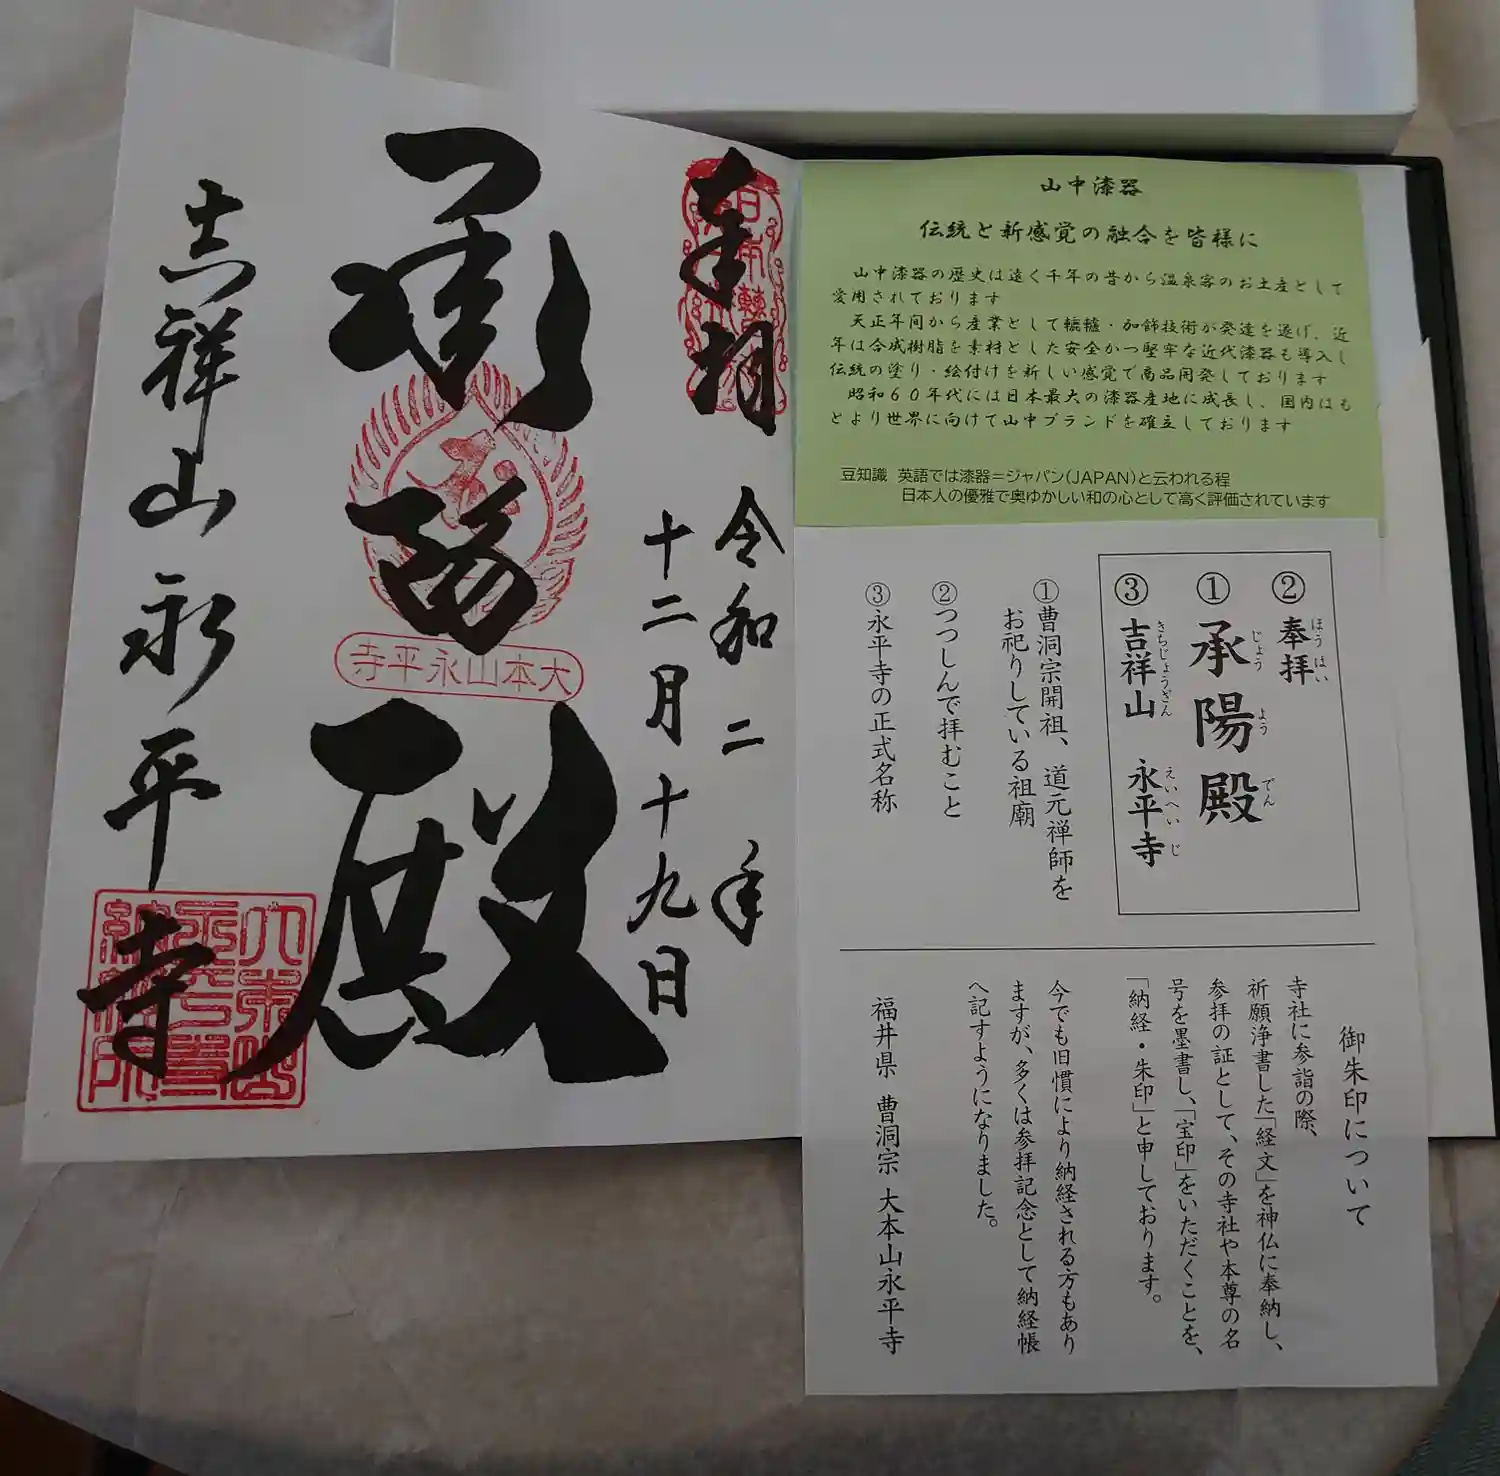 奉拝
令和二年
十二月十九日
承陽殿
大本山永平寺
吉祥山永平寺
山中漆器
伝統と新感覚の融合を皆様に
山中漆器の歴史は遠く千年の昔から温泉客のお土産として
愛用されております
天正年間から産業として轆轤・加飾技術が発達を遂げ、近
年は合成樹脂を素材とした安全かつ堅牢な近代漆器も導入し
伝統の塗り・絵付けを新しい感覚で商品開発しております
昭和60年代には日本最大の漆器産地に成長し、国内はも
とより世界に向けて山中ブランドを確立しております
豆知識 英語では漆器=ジャパン(JAPAN)と云われる程
日本人の優雅で奥ゆかしい和の心として高く評価されています
②奉拝
ほうはい
①承陽殿
じょうようでん
③吉祥山 永平寺
きちじょうざん えいへいじ
①曹洞宗開祖、道元禅師を
お祀りしている祖廟
②つつしんで拝むこと
③永平寺の正式名称
御朱印について
寺社に参詣の際、
祈願浄書した「経文」を神仏に奉納し、
参拝の証として、その寺社や本尊の名
号を墨書し、「宝印」をいただくことを、
「納経・朱印」と申しております。
今でも旧慣により納経される方もあり
ますが、多くは参拝記念として納経帳
へ記すようになりました。
福井県 曹洞宗 大本山永平寺